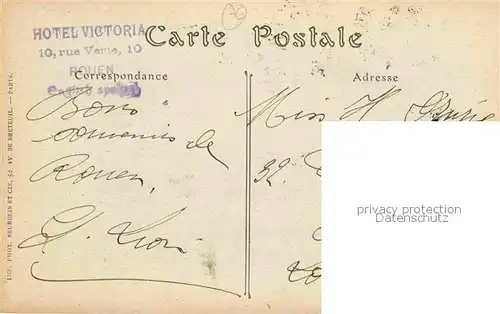 HOTEL VICTORIA
10, rue Verte, 10
ROUEN
English spoken
Carte Postale
Correspondance
Adresse
Bons
souvenirs de
Rouen,
Miss H.
32,
privacy protection
my-vintage-postcard.com
IMP. PHOT. NEURDEIN ET CIE, 52, AV. DE BRETEUIL. — PARIS.